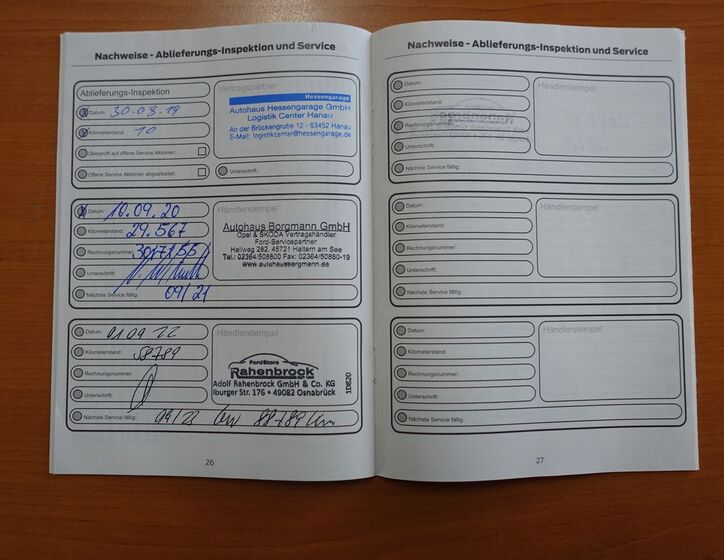 Nachweise - Ablieferungs-Inspektion und Service
Ablieferungs-Inspektion
Datum: 30.08.19
Kilometerstand: 10
Überprüft auf offene Service Aktionen:
Offene Service Aktionen abgearbeitet:
Vertragspartner:
Hessengarage
Autohaus Hessengarage GmbH
Logistik Center Hanau
An der Brückengrube 12 · 63452 Hanau
E-Mail: logistikcenter@hessengarage.de
Unterschrift:
Datum: 10.09.20
Kilometerstand: 29.567
Rechnungsnummer:
Unterschrift:
Nächste Service fällig: 09/21
Händlerstempel
Autohaus Borgmann GmbH
Opel & SKODA Vertragshändler
Ford-Servicepartner
Hellweg 282, 45721 Haltern am See
Tel.: 02364/508800 Fax: 02364/50880-19
www.autohausborgmann.de
Datum: 01 09 22
Kilometerstand: 58789
Rechnungsnummer:
Unterschrift:
Nächste Service fällig: 09/23 88789 Km
Händlerstempel
FordStore
Rahenbrock
Adolf Rahenbrock GmbH & Co. KG
Iburger Str. 176 • 49082 Osnabrück
10820
26
Nachweise - Ablieferungs-Inspektion und Service
Datum:
Kilometerstand:
Rechnungsnummer:
Unterschrift:
Nächste Service fällig:
Händlerstempel
Datum:
Kilometerstand:
Rechnungsnummer:
Unterschrift:
Nächste Service fällig:
Händlerstempel
Datum:
Kilometerstand:
Rechnungsnummer:
Unterschrift:
Nächste Service fällig:
Händlerstempel
27